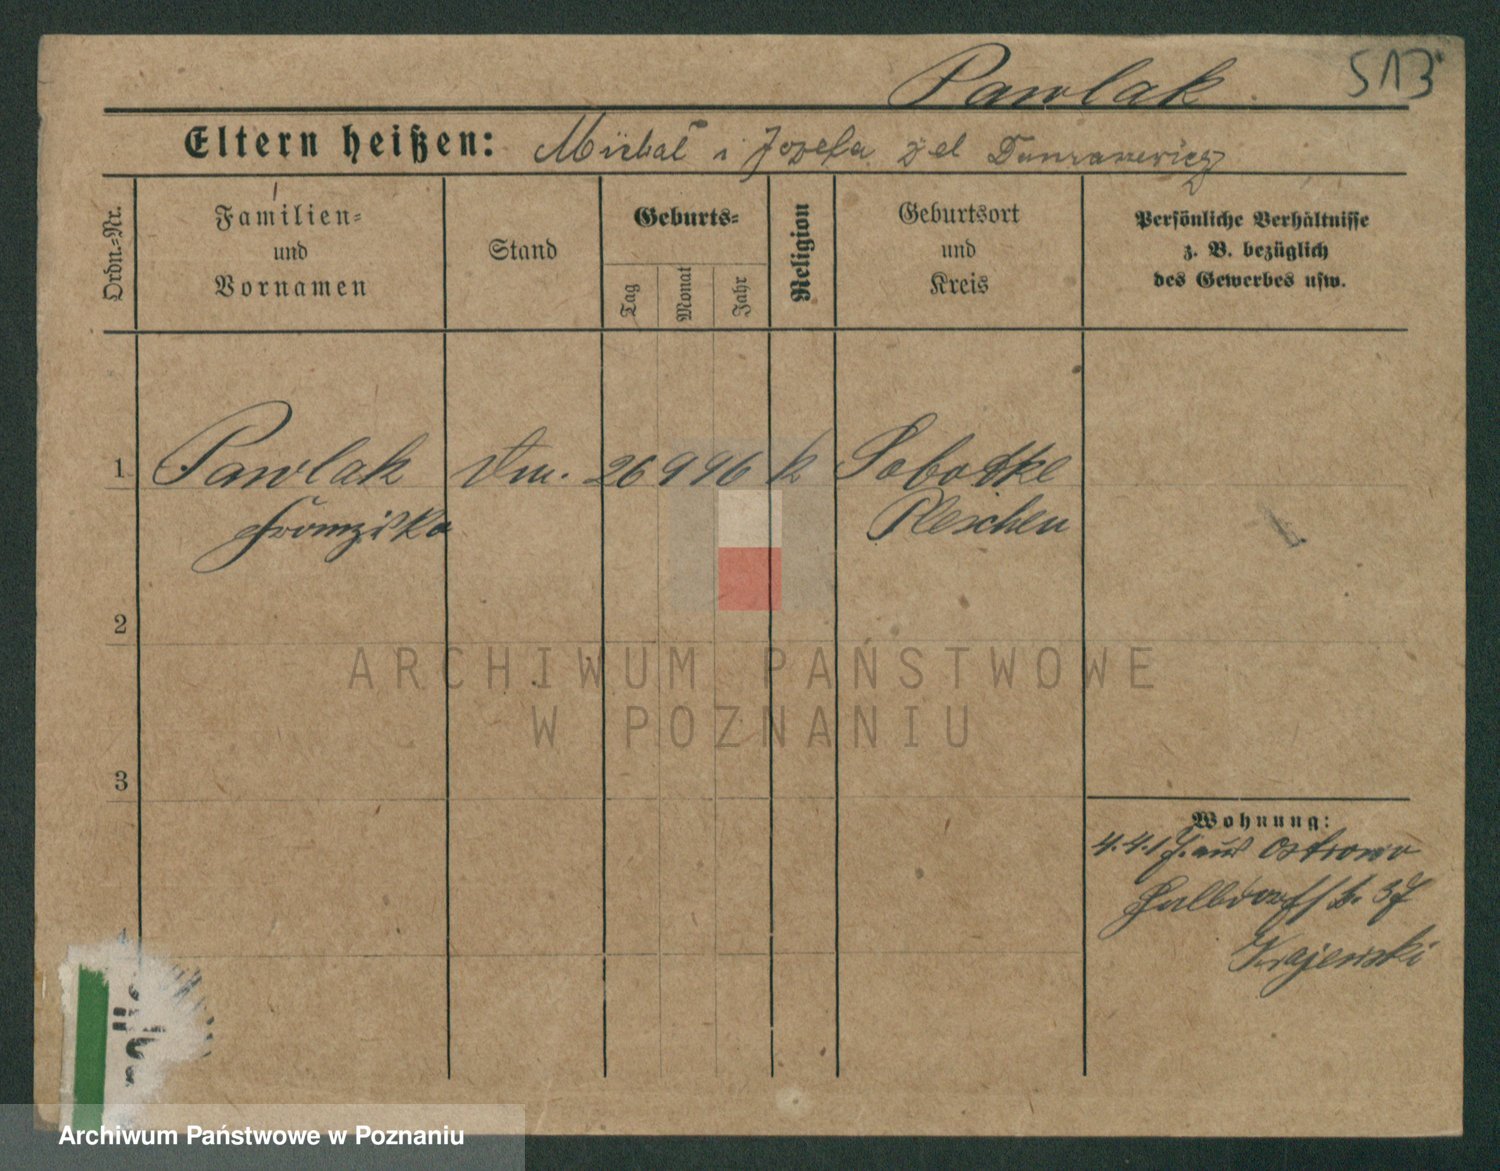 Pawlak
513
Eltern heißen: Michał i Józefa
Ordn.-Nr.
Familien-
und
Vornamen
Stand
Geburts-
Tag
Monat
Jahr
Religion
Geburtsort
und
Kreis
Persönliche Verhältnisse
z. B. bezüglich
des Gewerbes usw.
1 Pawlak 26 9 96 k Sobotke
Franziska Pleschen
2
3
4
Wohnung:
4.4.17. aus Ostrowo
Halbdorfstr. 37
Krajewski
ARCHIWUM PAŃSTWOWE
W POZNANIU
Archiwum Państwowe w Poznaniu